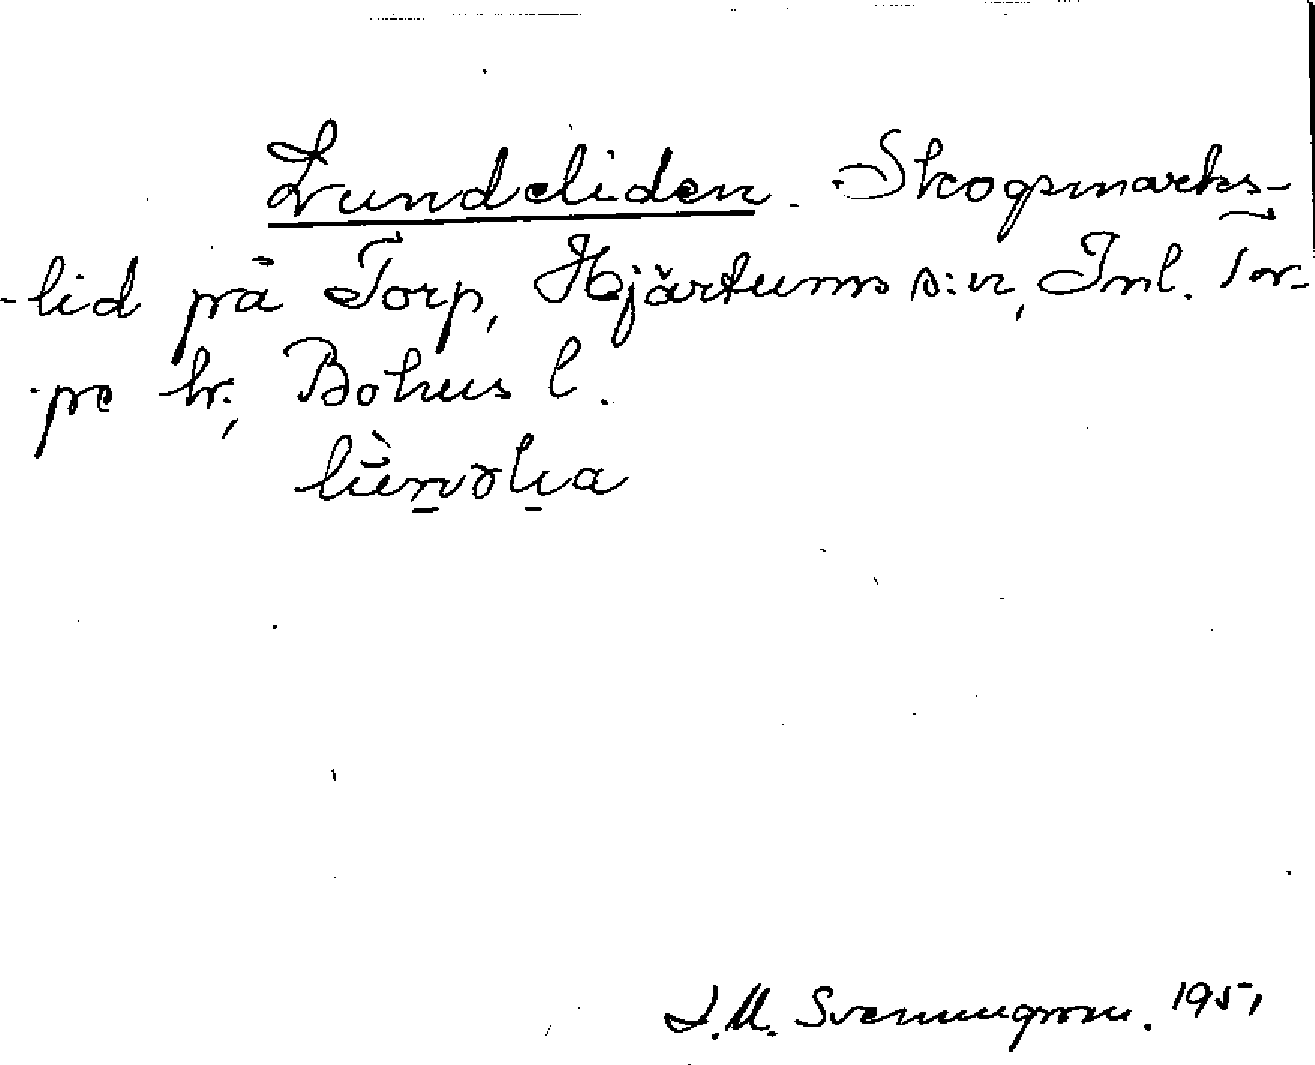 Lundeliden. Skogsmarks-
-lid på Torp, Hjärtums s:n, Inl. Tor-
pe hr., Bohus l.
J.M. Svenungson. 1951